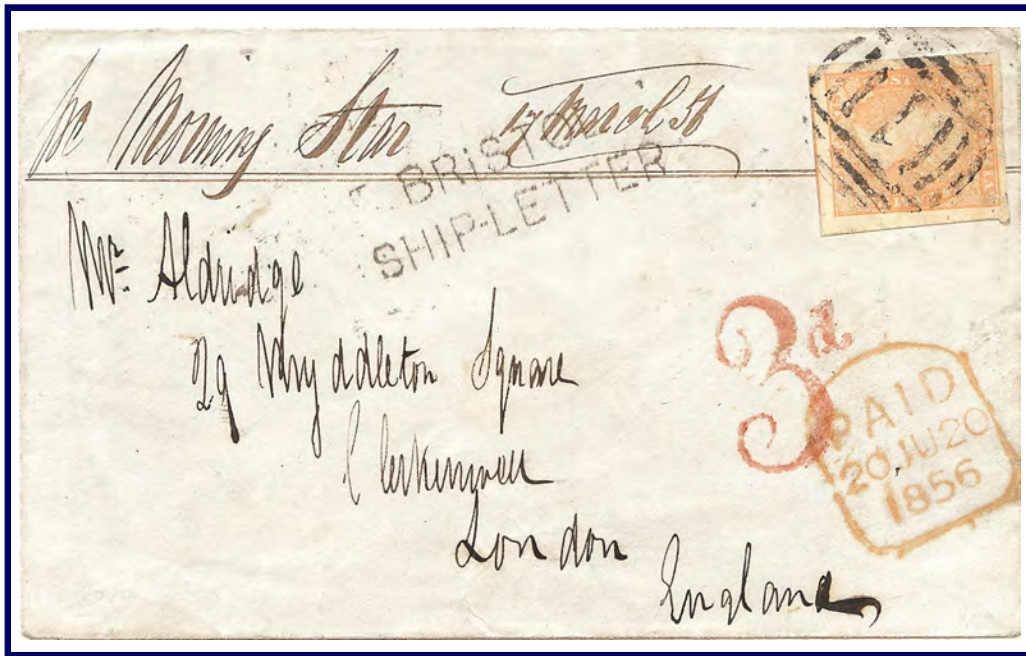 pr Morning Star 17 March 56
BRISTOL
SHIP-LETTER
Mr. Aldridge
29 Myddleton Square
Clerkenwell
London
England
3d
PAID
20 JU 20
1856